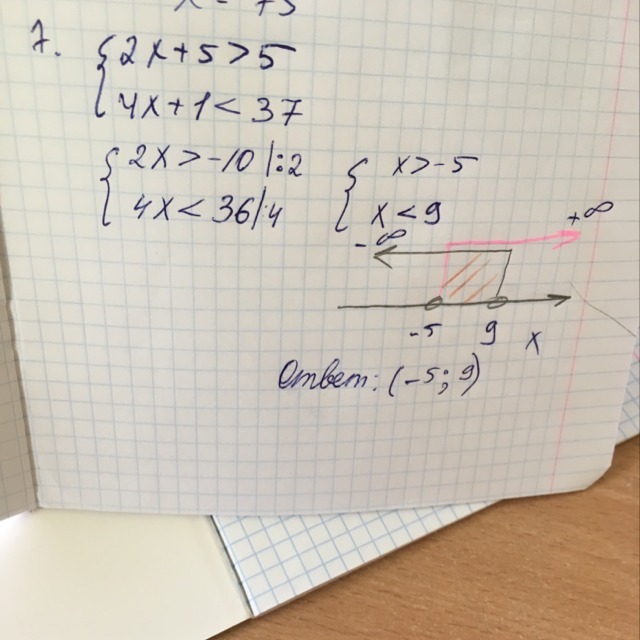 7. { 2x+5>5
4x+1<37
{ 2x>-10 |:2
4x<36 |4
{ x>-5
x<9
-∞ +∞
-5 9 x
Ответ: (-5; 9)